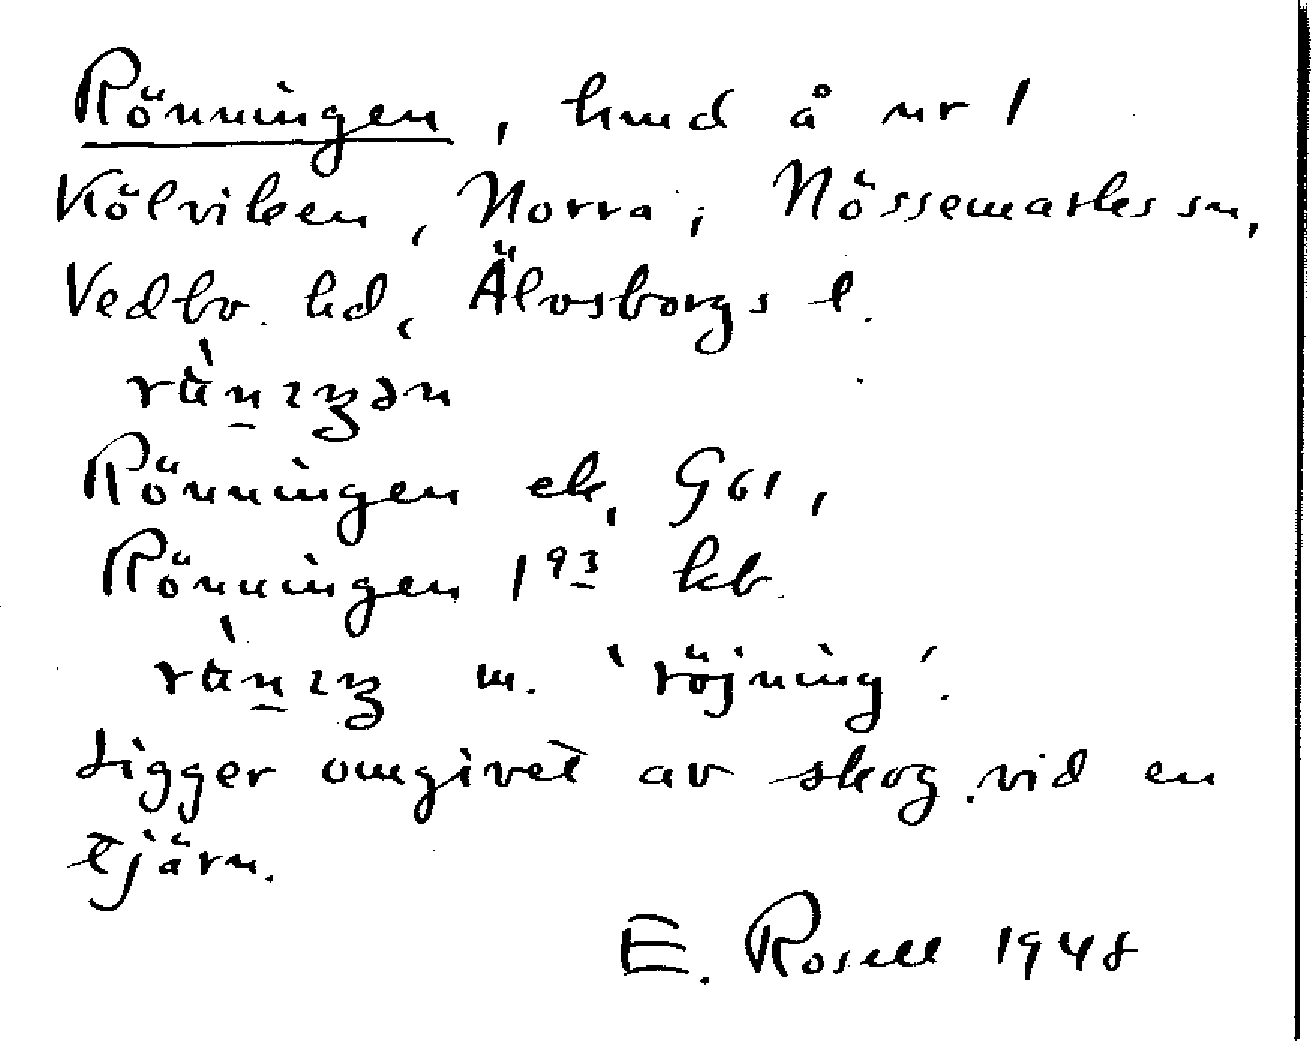 Rönningen, hmd å nr 1
Kölviken, Norra, Nössemarks sn,
Vedbo hd, Älvsborgs l.
Rönningen ek, G61,
Rönningen 1⁹³ kb.
m. 'röjning'.
Ligger omgivet av skog vid en
tjärn.
E. Rosell 1948